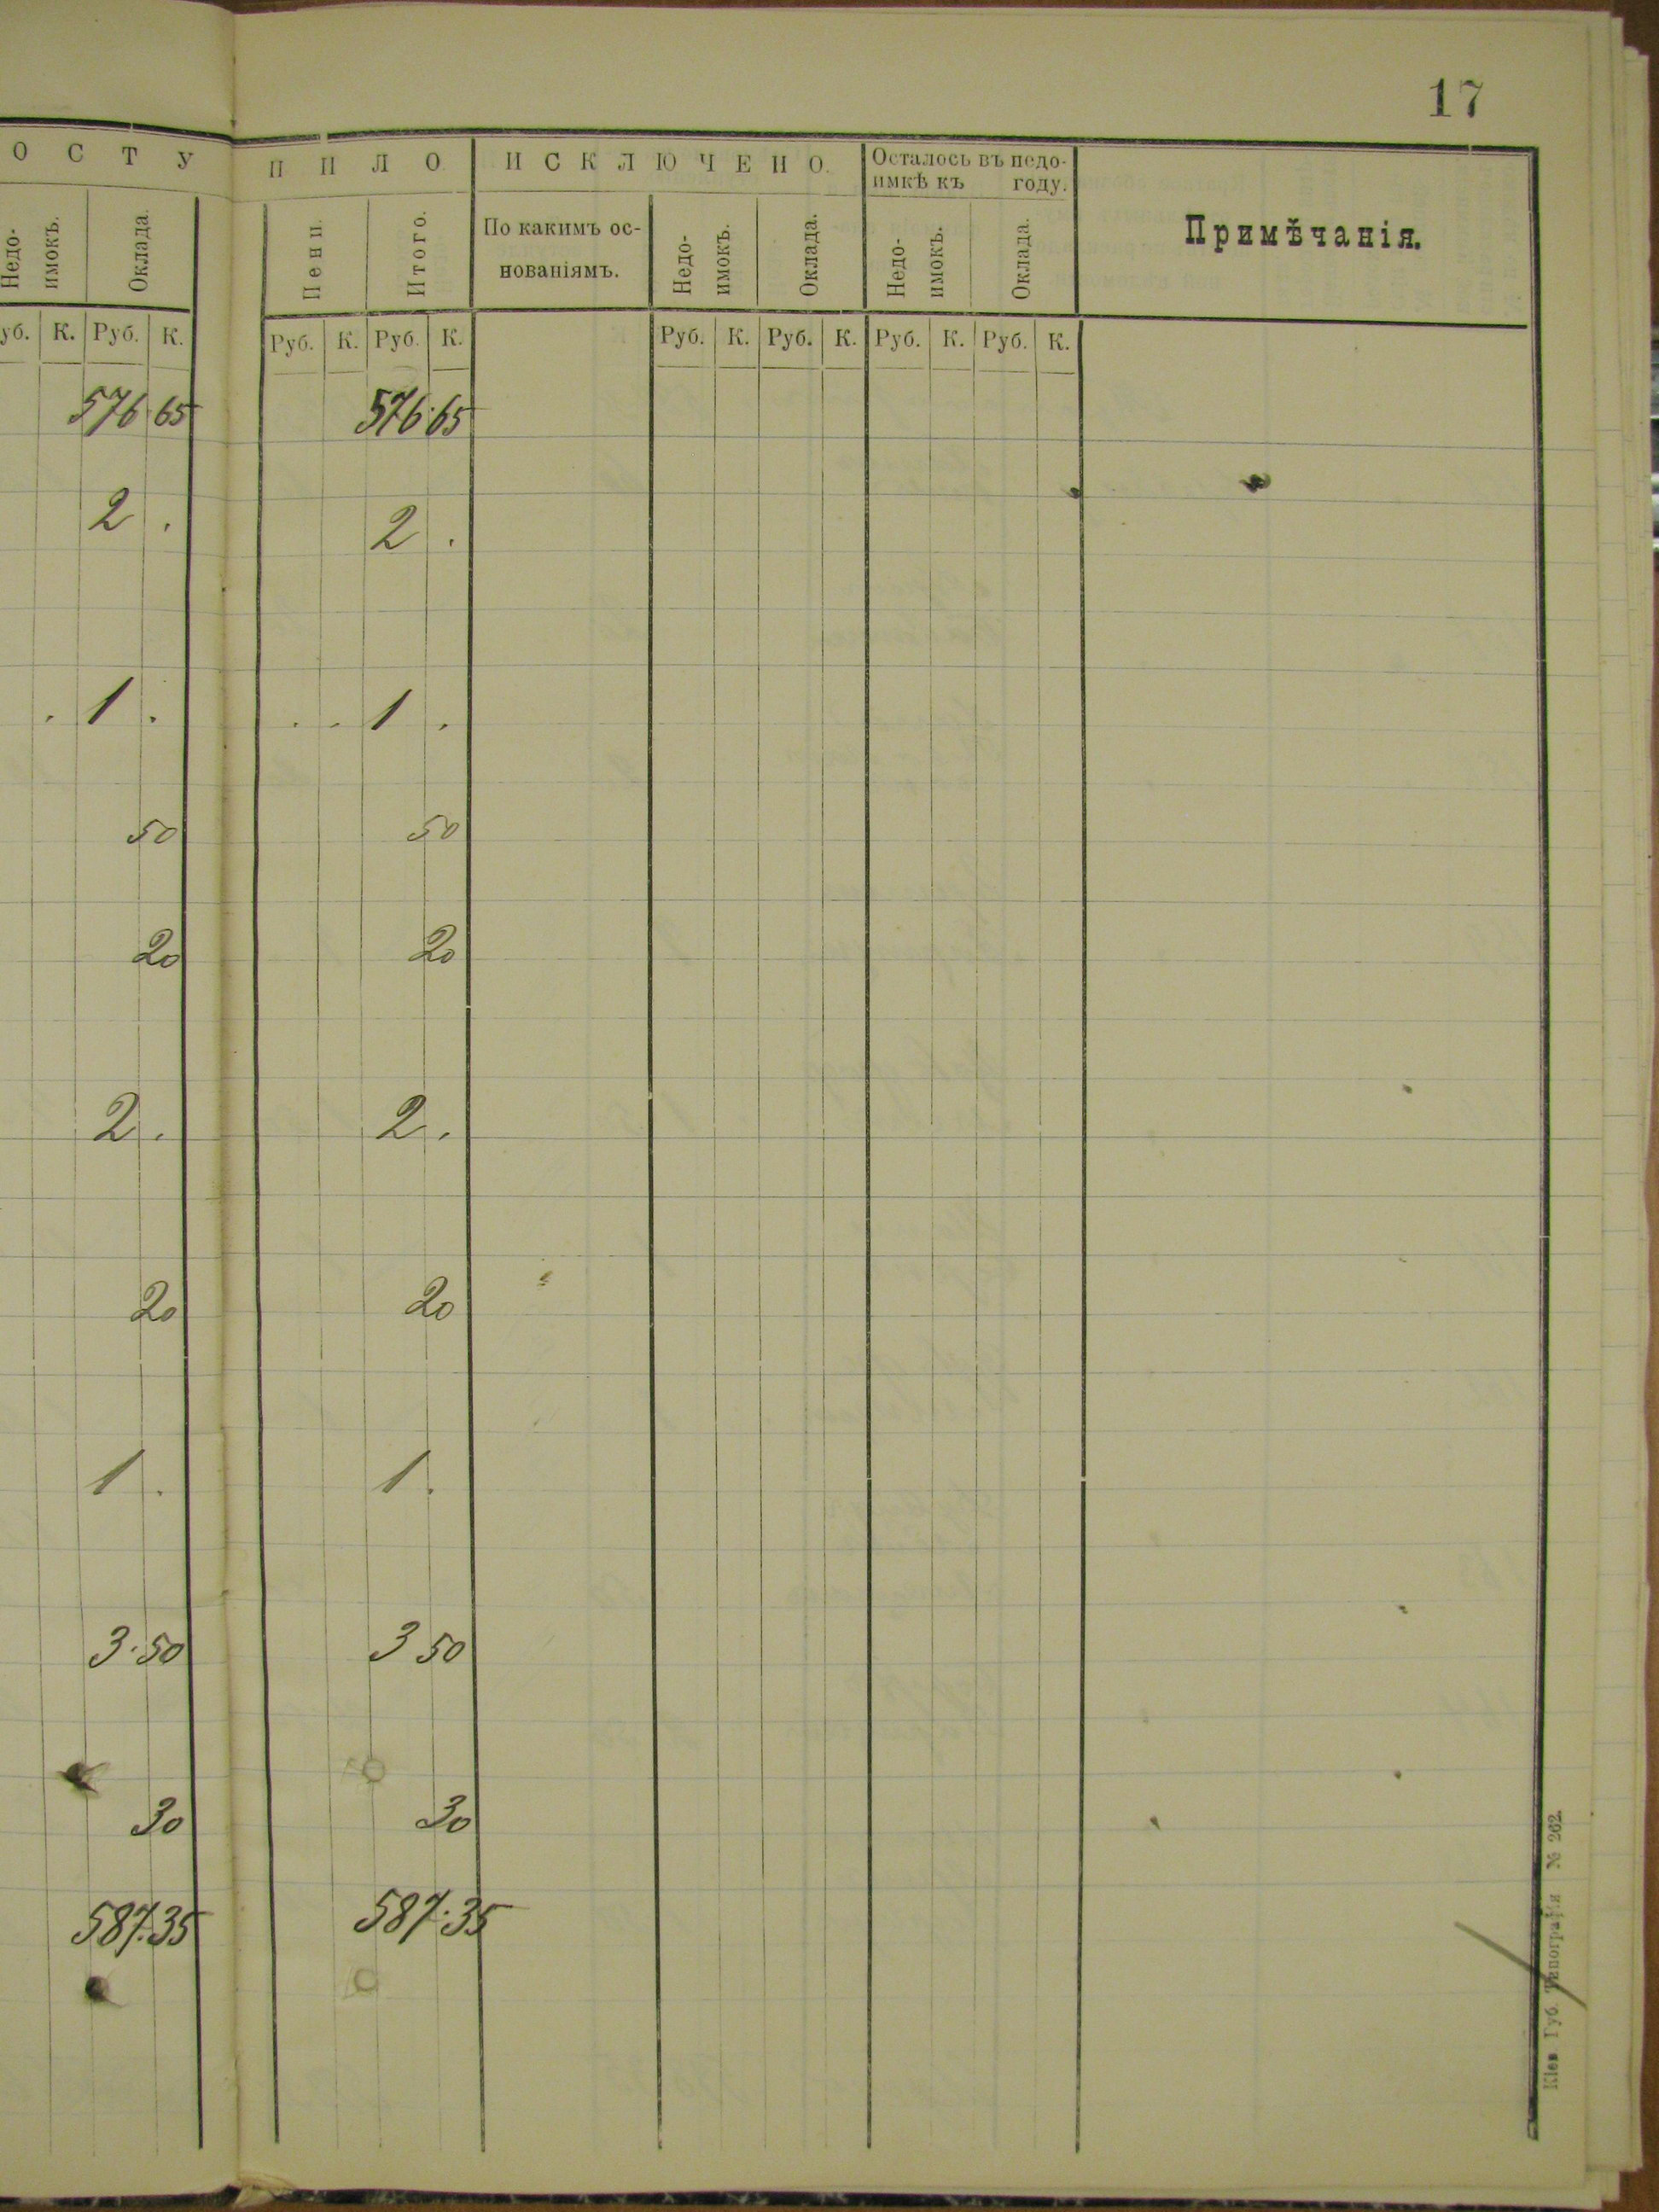 17
О С Т У П И Л О И С К Л Ю Ч Е Н О. Осталось въ недо-
имкѣ къ году. Примѣчанія.
Недо-
имокъ. Оклада. Пени. Итого. По какимъ ос-
нованіямъ. Недо-
имокъ. Оклада. Недо-
имокъ. Оклада.
уб. К. Руб. К. Руб. К. Руб. К. Руб. К. Руб. К. Руб. К. Руб. К.
576 65 576 65
2 . 2 .
. 1 . . . 1 .
50 50
20 20
2 . 2 .
20 20
1 . 1 .
3 50 3 50
30 30
587.35 587.35
Кіев Губ. Типографія № 262.